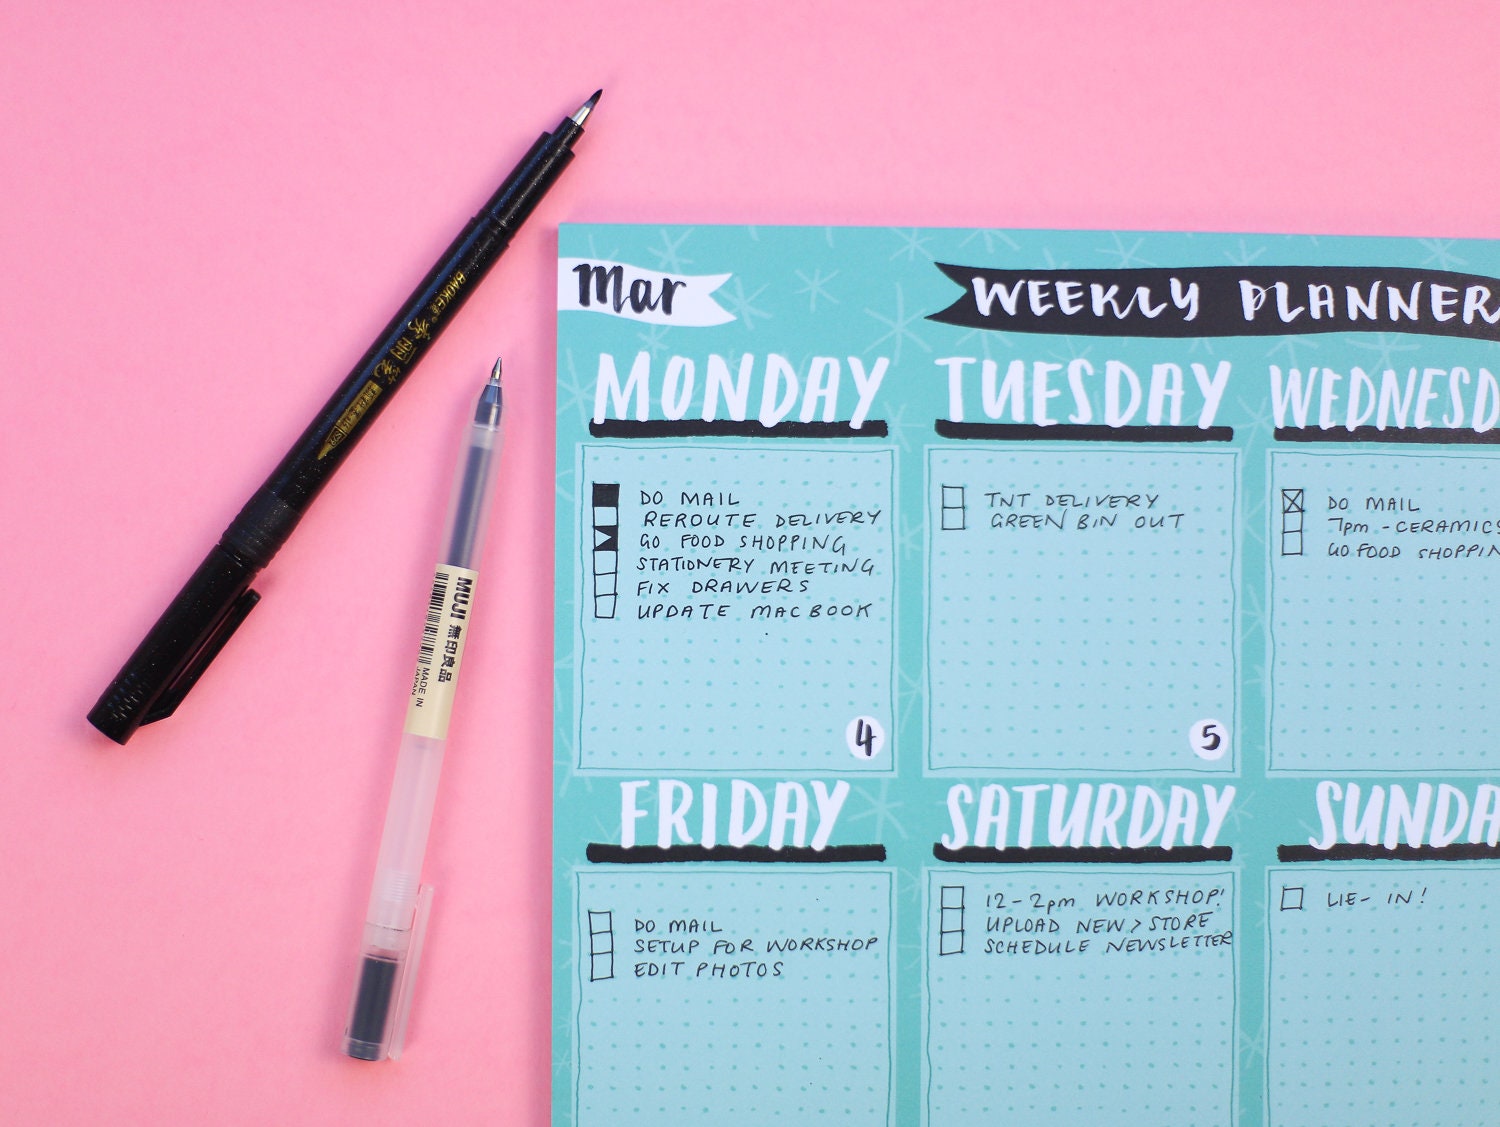 Mar
WEEKLY PLANNER
MONDAY
DO MAIL
REROUTE DELIVERY
GO FOOD SHOPPING
STATIONERY MEETING
FIX DRAWERS
UPDATE MACBOOK
4
TUESDAY
TNT DELIVERY
GREEN BIN OUT
5
WEDNESD
DO MAIL
7pm - CERAMICS
GO FOOD SHOPPIN
FRIDAY
DO MAIL
SETUP FOR WORKSHOP
EDIT PHOTOS
SATURDAY
12-2pm WORKSHOP!
UPLOAD NEW > STORE
SCHEDULE NEWSLETTER
SUNDA
LIE-IN!
BAOKE
MUJI 無印良品
MADE IN
JAPAN